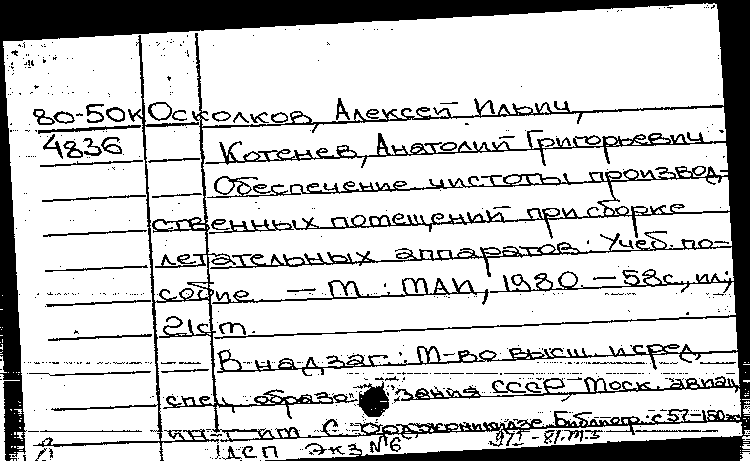 80-50к Осколков, Алексей Ильич,
4836 Котенев, Анатолий Григорьевич.
Обеспечение чистоты производ-
ственных помещений при сборке
летательных аппаратов: Учеб. по-
собие. — М.: МАИ, 1980. — 58с., ил.;
21см.
В надзаг.: М-во высш. и сред.
спец. образования СССР, Моск. авиац.
ин-т им. С. Орджоникидзе. Библиогр.: с 57-
ДСП Экз №6